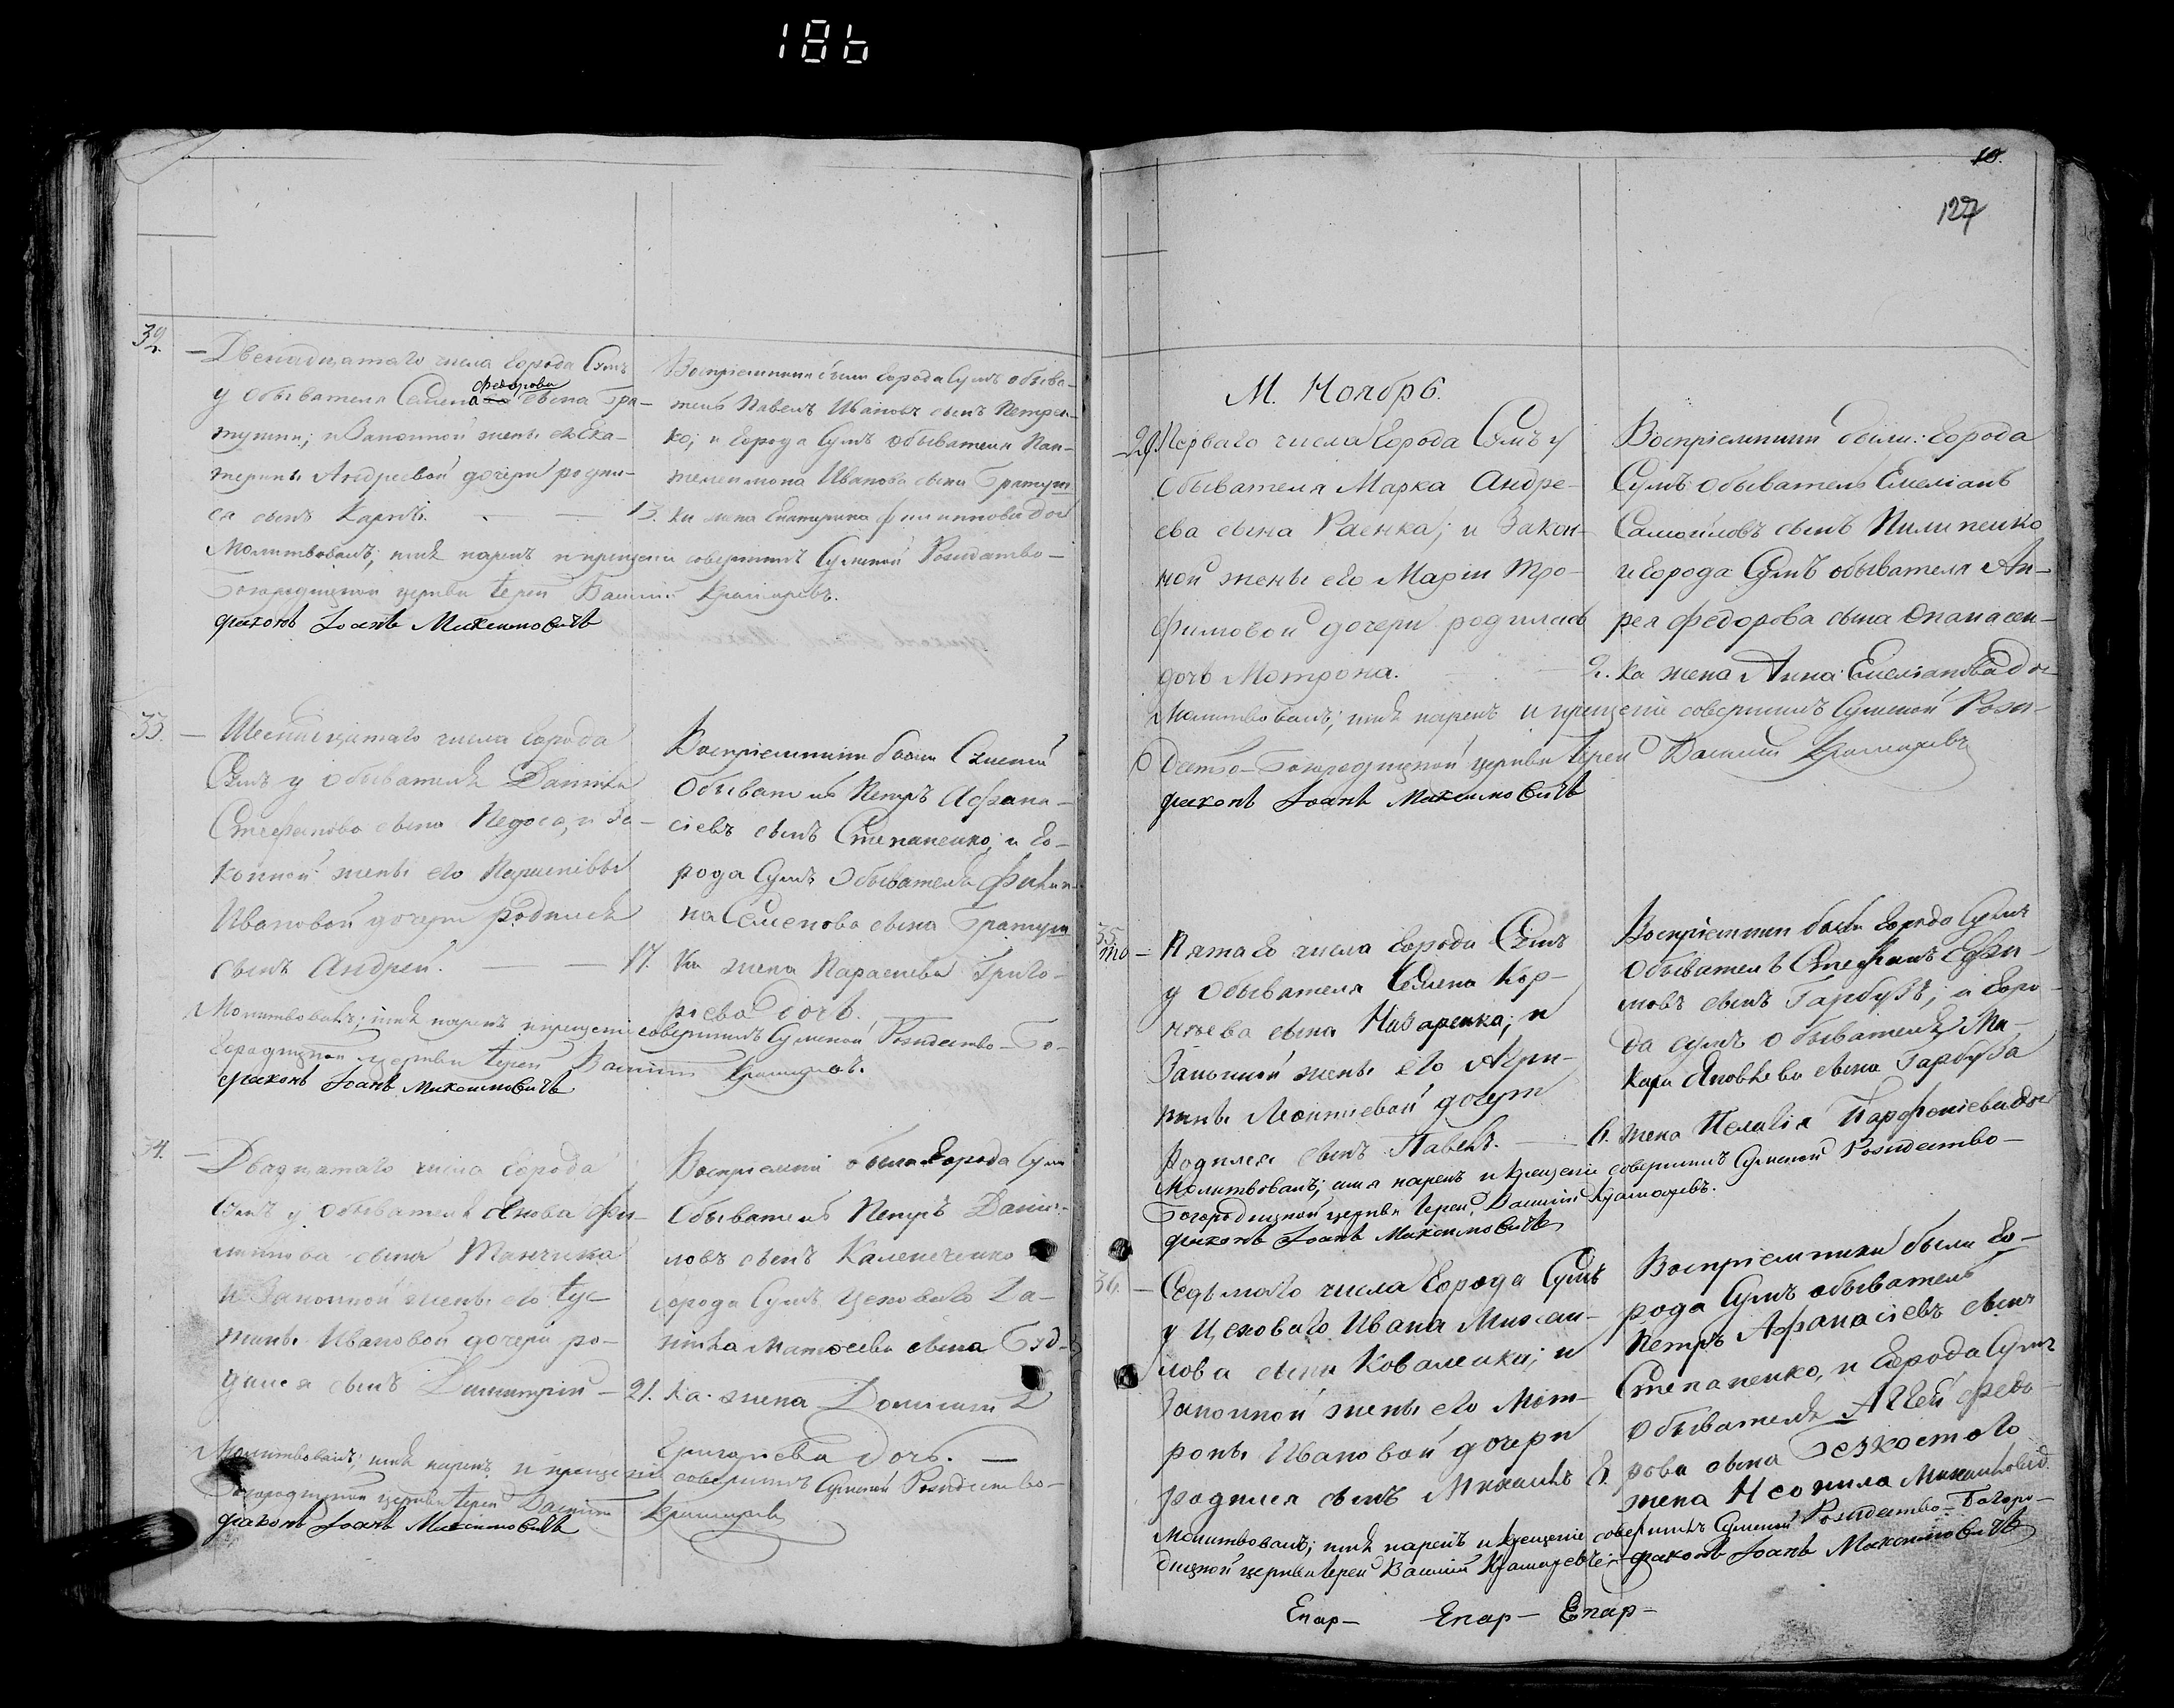 186
32.
— Двенадцатаго числа города Сумъ
у обывателя Семена Федорова сына Гра-
тушки; и Законной жены его Ека-
терины Андреевой дочери родил-
ся сынъ Карпъ. — — 13.
Воспріемники были города Сумъ обыва-
тель Павелъ Ивановъ сынъ Петрен-
ко; и города Сумъ обывателя Пан-
телеимона Иванова сына
ка жена Екатерина Филиппова доч
Молитвовалъ, имя нарекъ и крещеніе совершилъ Сумской Рождество-
Богородицкой церкви Іерей Василій Крамаревъ.
діаконъ Іоаннъ Максимовичъ
33.
— Шестнадцатаго числа города
Сумъ у обывателя Даніила
Стефанова сына Недоса, и За-
конной жены его Параскевы
Ивановой дочери родился
сынъ Андрей. — — 17.
Воспріемники были Сумской
обыватель Петръ Афана-
сіевъ сынъ Степаненко; и го-
рода Сумъ обывателя Филип-
па Семенова сына
ка жена Параскева Григо-
рьева дочь.
Молитвовалъ, имя нарекъ и крещеніе совершилъ Сумской Рождество-Бо-
городицкой церкви Іерей Василій Крамаревъ.
діаконъ Іоаннъ Максимовичъ
34.
— Двадцатаго числа города
Сумъ у обывателя Якова Фи-
липпова сына Танчика
и Законной жены его Іус-
тины Ивановой дочери ро-
дился сынъ Димитрій — 21.
Воспріемники были города Сумъ
обыватель Петръ Дании-
ловъ сынъ Каленеченко
города Сумъ цеховаго Да-
ниила Матвеева сына
ка жена
Григорьева дочь. —
Молитвовалъ, имя нарекъ и крещеніе совершилъ Сумской Рождество-
Богородицкой церкви Іерей Василій Крамаревъ
діаконъ Іоаннъ Максимовичъ
10.
127
М. Ноябрь.
Перваго числа города Сумъ у
обывателя Марка Андре-
ева сына Раенка; и Закон-
ной жены его Маріи Тро-
фимовой дочери родилась
дочь Мотрона. — 2.
Воспріемники были: города
Сумъ обыватель Емеліанъ
Самойловъ сынъ Пилипенко
и города Сумъ обывателя Ан-
рея Федорова сына Опанасен-
ка жена Анна Емеліанова доч
Молитвовалъ, имя нарекъ и крещеніе совершилъ Сумской Рож-
дество-Богородицкой церкви Іерей Василій Крамаревъ
діаконъ Іоаннъ Максимовичъ
35.
— Пятаго числа города Сумъ
у обывателя Семена Кор-
нѣева сына Назаренка; и
Законной жены его Агри-
пины Леонтіевой дочери
родился сынъ Павелъ. — 6.
Воспріемники были города Сумъ
обыватель Стефанъ Ефи-
мовъ сынъ Гарбузъ; и горо-
да Сумъ обывателя Ма-
кара Яковлева сына Гарбуза
жена Пелагія Парфеніева доч
Молитвовалъ, имя нарекъ и крещеніе совершилъ Сумской Рождество-
Богородицкой церкви Іерей Василій Крамаревъ.
діаконъ Іоаннъ Максимовичъ
36.
— Седьмаго числа города Сумъ
у Цеховаго Ивана Михаи-
лова сына Коваленка; и
Законной жены его Мот-
роны Ивановой дочери
родился сынъ Михаилъ 8.
Воспріемники были го-
рода Сумъ обыватель
Петръ Афанасіевъ сынъ
Степаненко, и города Сумъ
обывателя Федо-
рова сына Безкостого
жена Неонила Михаилова д.
Молитвовалъ, имя нарекъ и крещеніе совершилъ Сумской Рождество-Богоро-
дицкой церкви Іерей Василій Крамаревъ. діаконъ Іоаннъ Максимовичъ
Епар— Епар— Епар—